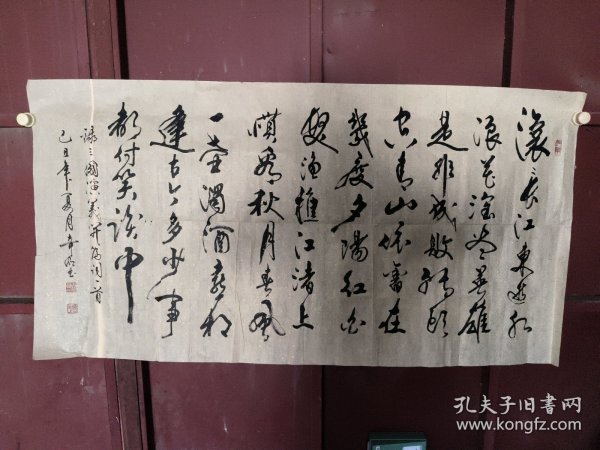 滚々长江東逝水
浪花淘尽英雄
是非成敗转头
空青山依舊在
幾度夕陽红白
发渔樵江渚上
惯看秋月春風
一壶濁酒喜相
逢古今多少事
都付笑谈中
録三國演義开篇词一首
己丑年夏月
孔夫子旧书网
www.kongfz.com